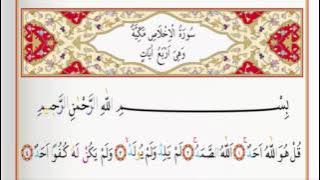 سُورَةُ الْإِخْلَاصِ مَكِّيَّةٌ
وَهِيَ أَرْبَعُ آيَاتٍ
بِسْمِ اللّٰهِ الرَّحْمٰنِ الرَّحِيمِ
قُلْ هُوَ اللّٰهُ اَحَدٌ ۞ اَللّٰهُ الصَّمَدُ ۞ لَمْ يَلِدْ وَلَمْ يُولَدْ ۞ وَلَمْ يَكُنْ لَهُ كُفُوًا اَحَدٌ